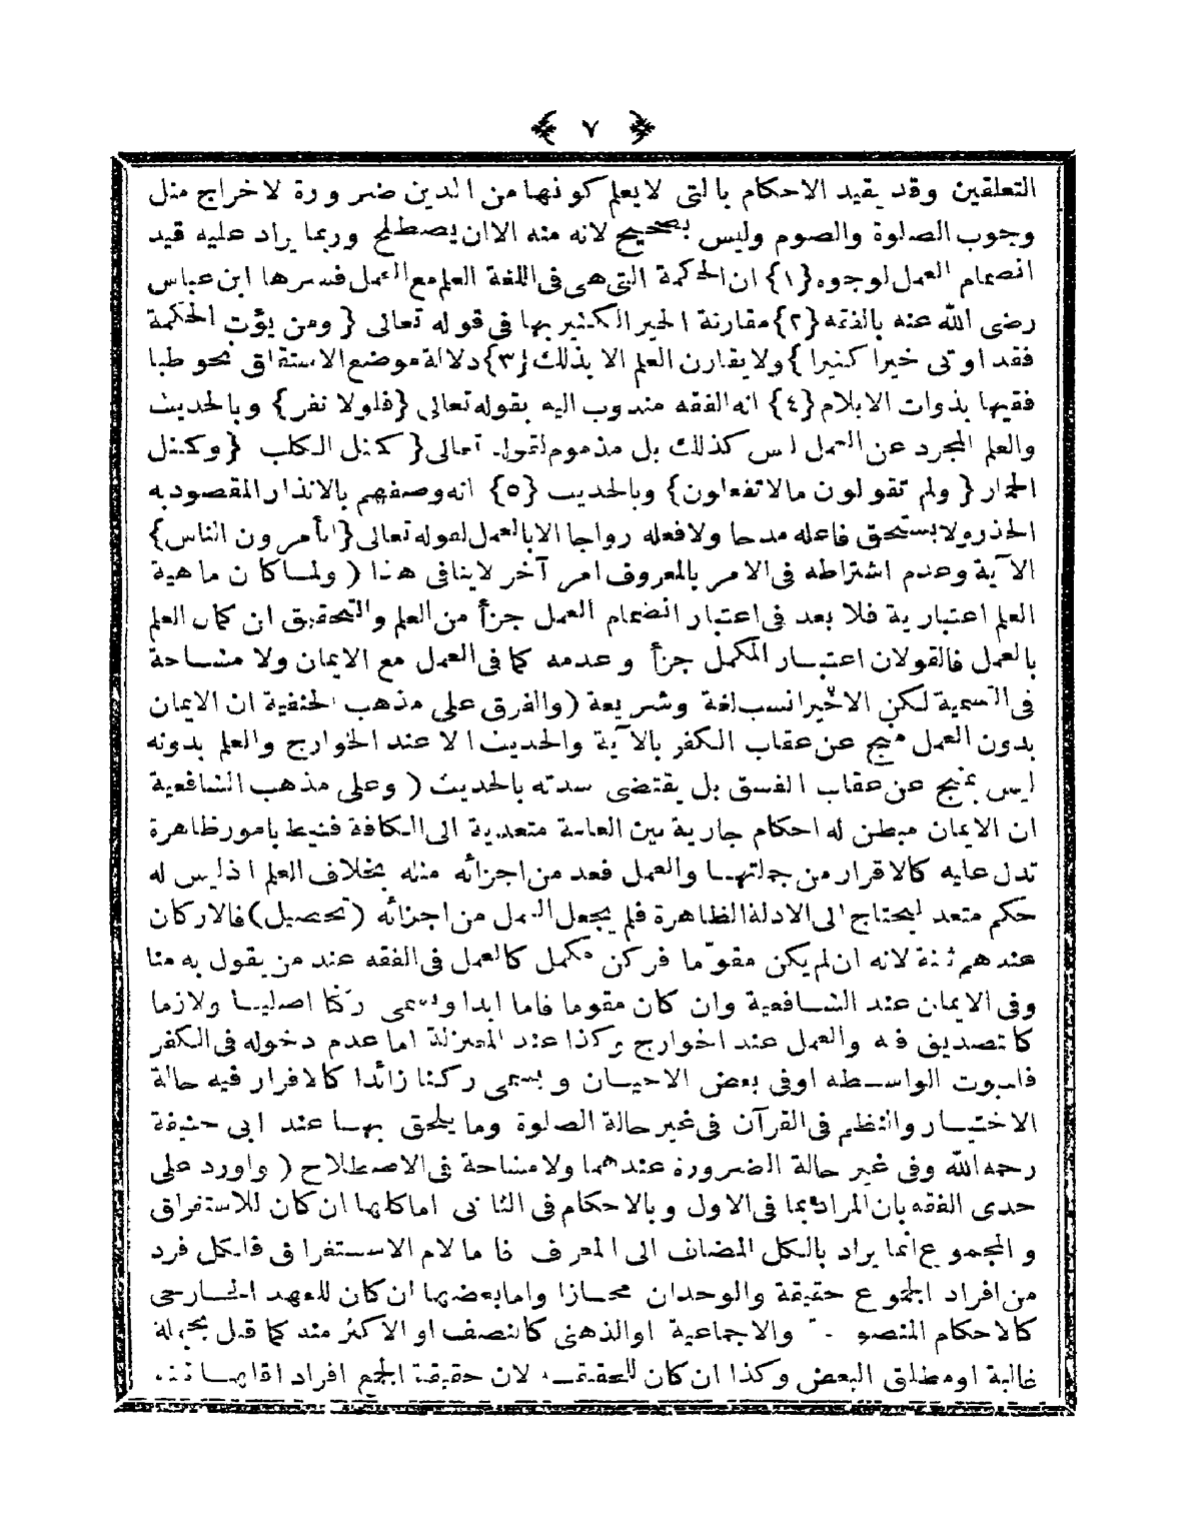 ﴿ ٧ ﴾
التعلقين وقد يقيد الاحكام بالتى لايعلم كونها من الدين ضرورة لاخراج مثل
وجوب الصلوة والصوم وليس بصحيح لانه منه الاان يصطلح وربما يراد عليه قيد
انضمام العمل لوجوه {١} ان الحكمة التى هى فى اللغة العلم مع العمل فسرها ابن عباس
رضى الله عنه بالفقه {٢} مقارنة الخير الكثير بها فى قوله تعالى { ومن يؤت الحكمة
فقد اوتى خيرا كثيرا } ولا يقارن العلم الا بذلك {٣} دلالة موضع الاشتقاق نحو طبا
فقيها بذوات الابلام {٤} انه الفقه مندوب اليه بقوله تعالى {فلولا نفر} وبالحديث
والعلم المجرد عن العمل ليس كذلك بل مذموم لقوله تعالى { كمثل الكلب { وكمثل
الحمار { ولم تقولون مالاتفعلون} وبالحديث {٥} انه وصفهم بالانذار المقصود به
الحذر ولا يستحق فاعله مدحا ولافعله رواجا الابالعمل لقوله تعالى {اتأمرون الناس}
الآية وعدم اشتراطه فى الامر بالمعروف امر آخر لاينافى هذا ( ولمـا كان ماهية
العلم اعتبارية فلا بعد فى اعتبار انضمام العمل جزأ من العلم والتحقيق ان كمال العلم
بالعمل فالقولان اعتبـار المكمل جزأ وعدمه كما فى العمل مع الايمان ولا مشـاحة
فى التسمية لكن الاخير انسب لغة وشريعة (والفرق على مذهب الحنفية ان الايمان
بدون العمل منج عن عقاب الكفر بالآية والحديث الا عند الخوارج والعلم بدونه
ليس بمنج عن عقاب الفسق بل يقتضى شدته بالحديث ( وعلى مذهب الشافعية
ان الايمان مبطن له احكام جارية بين العامة متعدية الى الكافة فنيط بامور ظاهرة
تدل عليه كالاقرار من جملتهـا والعمل فعد من اجزائه منله بخلاف العلم اذ ليس له
حكم متعد ليحتاج الى الادلة الظاهرة فلم يجعل العمل من اجزائه (تحصيل) فالاركان
عندهم ثلثة لانه ان لم يكن مقوّما فركن مكمل كالعمل فى الفقه عند من يقول به منا
وفى الايمان عند الشـافعية وان كان مقوما فاما ابدا ويسمى ركنا اصليـا ولازما
كالتصديق فيه والعمل عند الخوارج وكذا عند المعتزلة اما عدم دخوله فى الكفر
فلثبوت الواسـطة اوفى بعض الاحيـان ويسمى ركنا زائدا كالاقرار فيه حالة
الاختيـار والنظم فى القرآن فى غير حالة الصلوة وما يلحق بهـا عند ابى حنيفة
رحمه الله وفى غير حالة الضرورة عندهما ولامشاحة فى الاصطلاح ( واورد على
حدى الفقه بان المراد بما فى الاول وبالاحكام فى الثانى اما كلها ان كان للاستغراق
والمجموع انما يراد بالكل المضاف الى المعرف فاما لام الاسـتغراق فلكل فرد
من افراد المجموع حقيقة والوحدان مجـازا واما بعضها ان كان للعهد الخـارجى
كالاحكام المنصو والاجماعية او الذهنى كالنصف او الاكثر منه كما قيل بجملة
غالبة او مطلق البعض وكذا ان كان للحقيقـة لان حقيقة الجمع افراد اقلهـا ثلثة